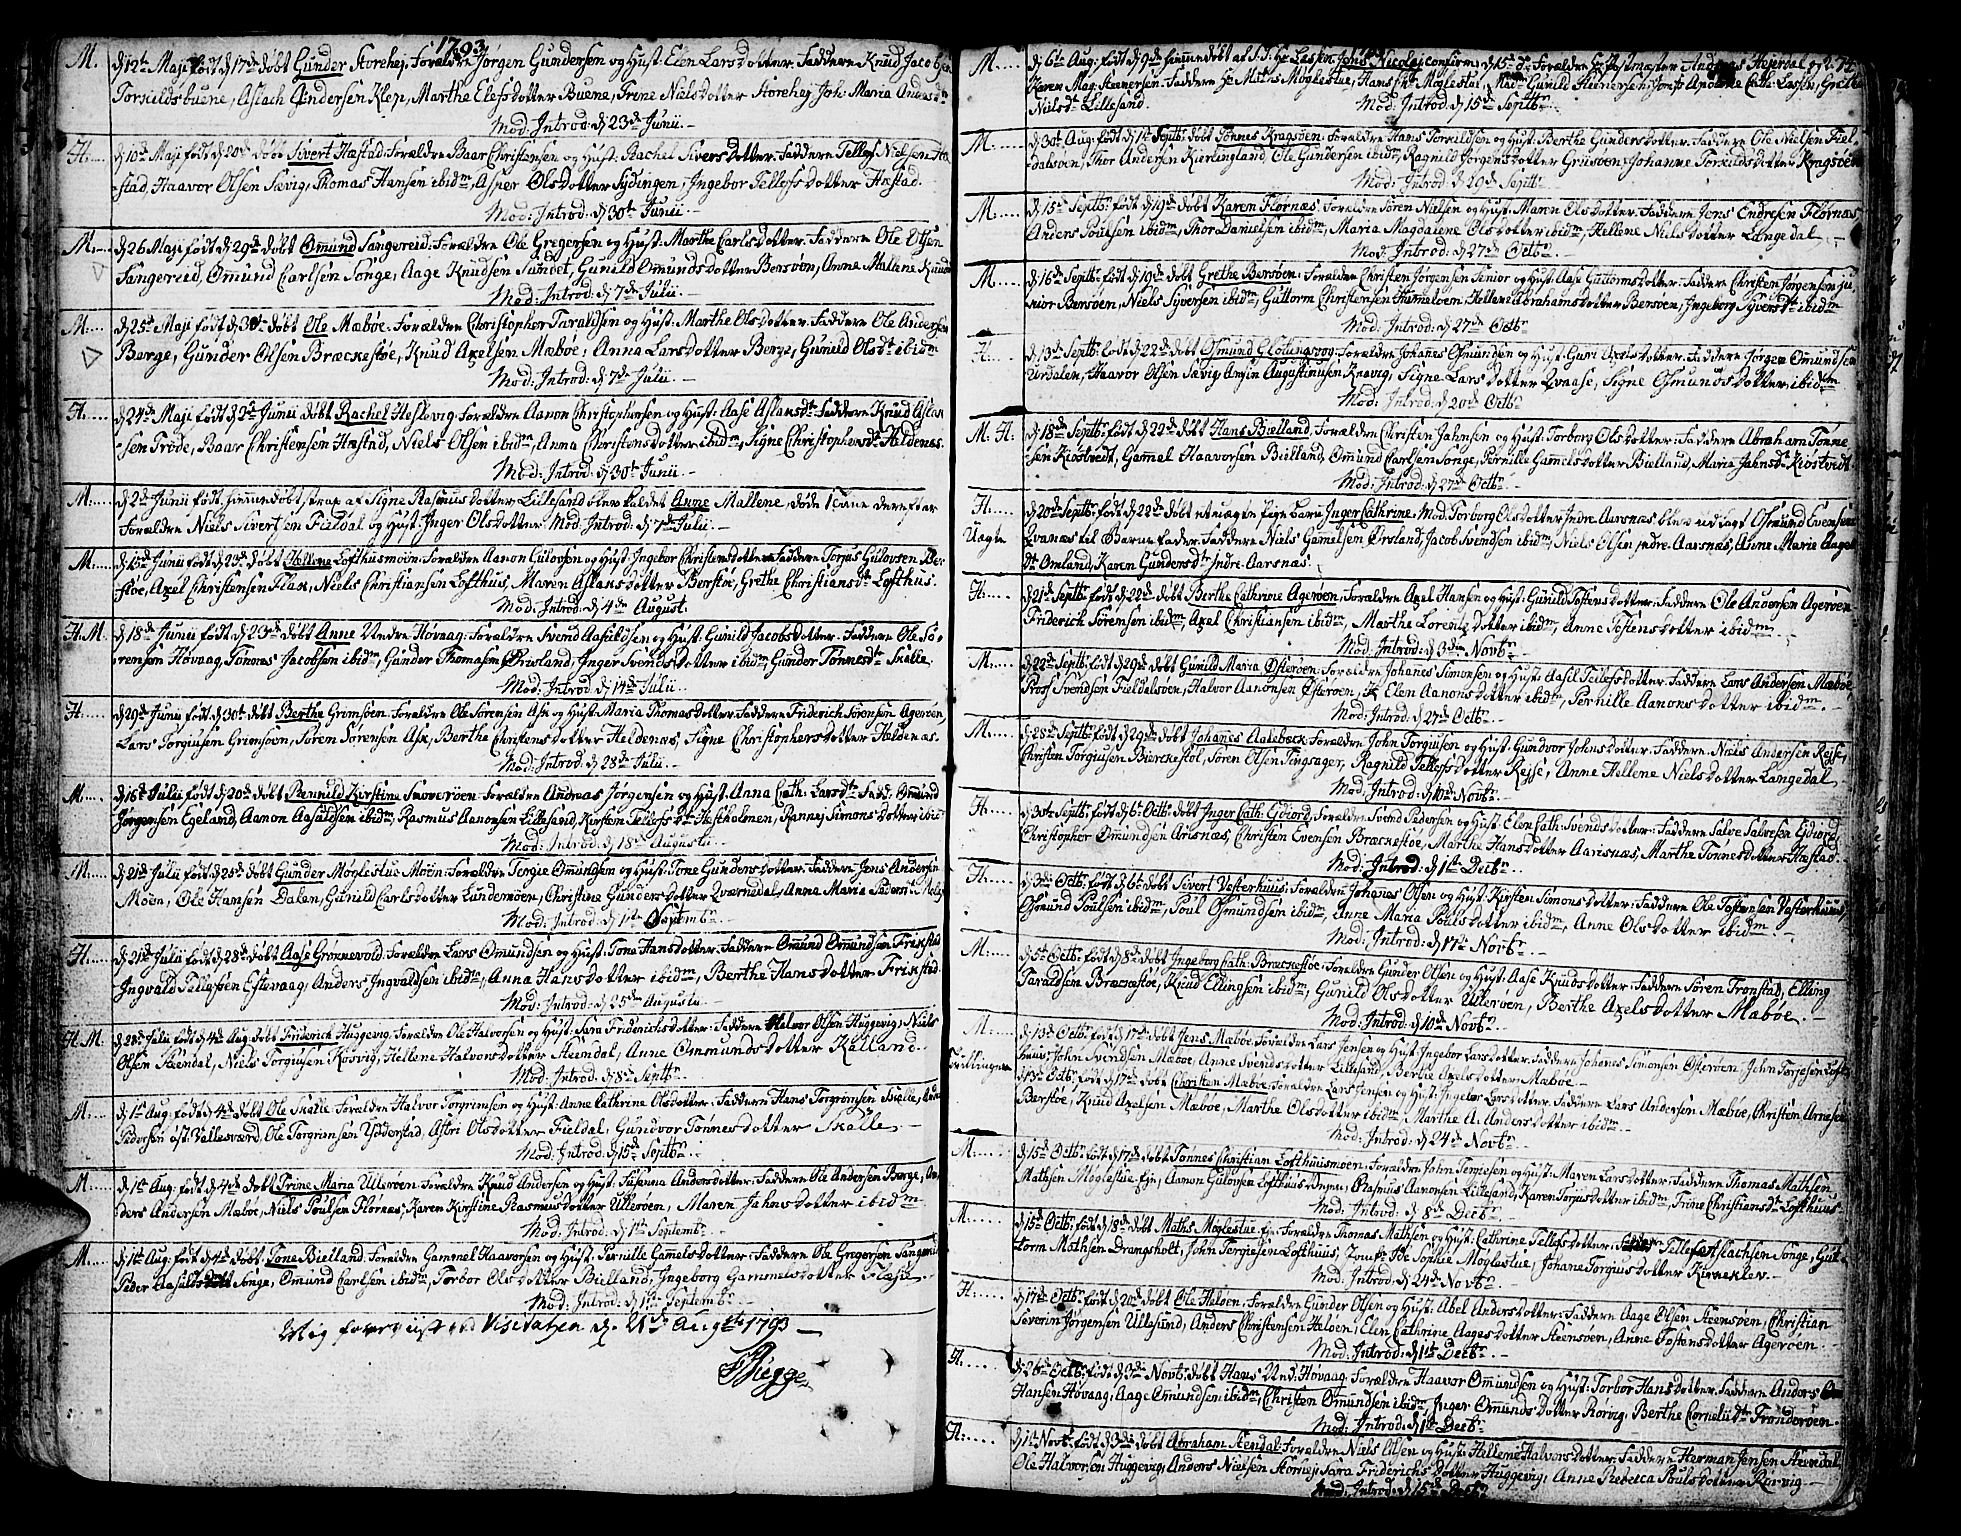 1793
M. d 12te Maji født d 17de døbt Gunder Storehej. Forældre Jørgen Gundersen og Hust: Elen Larsdotter. Faddere Knud Jacobsen
Torkildsbuene, Aslach Gundersen Klep, Marthe Elefsdotter Buene, Trine Nielsdotter Storehej, Joh: Maria Andersdr
Mod: Introd: d 23de Junii
H. d 10de Maji født d 20de døbt Sivert Hæstad. Forældre Baar Christensen og Hust: Rachel Siversdotter. Faddere Tellef Nielsen Hæ-
stad, Haavor Olsen Sævig, Thomas Hansen ibidm, Asper Olsdotter Sydingen, Ingebor Tellefsdotter Hæstad.
Mod: Introd: d 30te Junii
M. d 26 Maji født d 29de døbt Omund Sangereid. Forældre Ole Gregersen og Hust: Marthe Carlsdotter. Faddere Ole Olsen
Sangereid, Omund Carlsen Songe, Aage Knudsen Sundet, Gunild Omundsdotter Bersøen, Anne Mallene Knud
Mod: Introd: d 7de Julii
M. d 25de Maji født d 30te døbt Ole Mæbøe. Forældre Christopher Taraldsen og Hust: Marthe Olsdotter. Faddere Ole Andersen
Berge, Gunder Olsen Bræckestøe, Knud Axelsen Mæbøe, Anna Larsdotter Berge, Gunild Olsdr ibidm
Mod: Introd: d 7de Julii
H. d 24de Maji født d 2de Junii døbt Rachel Heslevig. Forældre Aaron Christophersen og Hust: Aase Aslaksdr. Faddere Knud Aslak-
sen Trøde, Baar Christensen Hæstad, Niels Olsen ibidm, Anna Christensdotter ibidm, Signe Christophersdr Heldenæs.
Mod: Introd: d 30te Junii
M. d 2de Junii født hjemmedøbt strax af Signe Rasmusdotter Lillesand blev kaldet Anne Mallene, døde 1 time derefter
Forældre Niels Sivertsen Fieldal og Hust: Inger Olsdotter Mod: Introd: d 7de Julii
M. d 15de Junii født d 23de døbt Hellene Lofthusmoen. Forældre Aanon Gulovsen og Hust: Ingebor Christensdotter. Faddere Torjus Gulovsen Ber-
støe, Axel Christensen Flak, Niels Christiansen Lofthus, Maren Aslaksdotter Berstøe, Grethe Christiansdr Lofthus.
Mod: Introd: d 4de August.
H.M. d 18de Junii født d 23de døbt Anne Nedre Høvaag. Forældre Svend Aasildsen og Hust: Gunild Jacobsdotter. Faddere Ole Sø-
rensen Høvaag, Tønnes Jacobsen ibidm, Gunder Thomasen Ørisland, Inger Svendsdotter ibidm, Gunder Tønnesdr Skalle.
Mod: Introd: d 14de Julii
H. d 29de Junii født d 30te døbt Berthe Grimsøen. Forældre Ole Sørensen Ask og Hust: Maria Thomasdotter. Faddere Friderich Sørensen Agerøen,
Lars Torgiusen Grimsøen, Søren Sørensen Ask, Berthe Christensdotter Heldenæs, Signe Christophersdotter Heldenæs.
Mod: Introd: d 28de Julii
M. d 16de Julii født d 20de døbt Rennild Kirstine Skoverøen. Forældre Andreas Jørgensen og Hust: Anna Cath: Larsdr. Fadd: Omund
Jørgensen Egeland, Aanon Aasuldsen ibidm, Rasmus Aanonsen Lillesand, Kirsten Tellefsdr Hestholmen, Rannej Simonsdotter ibid
Mod: Introd: d 18de Augusti
M. d 21de Julij født d 25de døbt Gunder Møglestue Moen. Forældre Tergie Omundsen og Hust: Tone Gundersdotter. Faddere Jens Andersen
Moen, Ole Hansen Dalen, Gunild Carlsdotter Lundemoen, Christine Gundersdotter Qværndal, Anna Maria Pedersdr
Mod: Introd: d 1te Septembr
H. d 21de Julii født d 28de døbt Aase Grønnevold. Forældre Lars Omundsen og Hust: Tona Hansdotter. Faddere Omund Omundsen Frikstad
Ingvald Tellefsen Estevaag, Anders Ingvaldsen ibidm, Anna Hansdotter ibidm, Berthe Hansdotter Frikstad.
Mod: Introd: d 25de Augusti
H M. d 28de Julii født d 4de Aug. døbt Friderich Huggevig. Forældre Ole Halvorsen og Hust: Sara Friderichsdotter. Faddere Halvor Olsen Huggevig, Niels
Olsen Steendal, Niels Torgiusen Kosvig, Hellene Halvorsdotter Steendal, Anne Ommundsdotter Kalland.
Mod: Introd: d 8de Septbr
M. d 1te Aug. født d 4de døbt Ole Skalle. Forældre Halvor Torgrimsen og Hust: Anne Cathrine Olsdotter. Faddere Hans Torgrimsen Skalle,
Pedersen øst: Vallesværd, Ole Torgrimsen Ydderstad, Astri Olsdotter Fieldal, Gundvor Tønnesdotter Skalle
Mod: Introd: d 15de Septbr
M. d 1te Aug. født d 4de døbt Trine Maria Ullerøen. Forældre Knud Andersen og Hust: Susanna Andersdotter. Faddere Ole Andersen Berge, An-
ders Andersen Mæbøe, Niels Poulsen Flørnæs, Karen Kirstine Rasmusdotter Ullerøen, Maren Jahnsdotter ibidm
Mod: Introd: d 1te Septembr
M. d 1te Aug. født d 4de døbt Tone Bielland. Forældre Gammel Haavorsen og Hust: Pernille Gamelsdotter. Faddere Ole Gregersen Sangereid
Peder Aasulds Songe, Omund Carlsen ibidm, Torbor Olsdotter Bielland, Ingeborg Gammelsdotter
Mod: Introd: d 1te Septembr
Mig foreviist ved Visitatzen d. 21de Augsti 1793
Hegge
M. d 6te Aug. født d 9de hjemmedøbt Jens Nicolaj confirm: d 15de Forældre Andreas Hejerdal og
Karen Mag: Steenersen. Faddere Mathis Møglestue, Hans Møglestue, Gunild Steenersen, Cath: Lassen, Grethe
Nielsdr Lillesand. Mod: Introd: d 15de Septbr
M. d 30te Aug. født d 1te Septbr døbt Tønnes Kragsøen. Forældre Hans Torkildsen og Hust: Berthe Gundersdotter. Faddere Ole Nielsen Fiel-
dalsøen, Thor Andersen Kierlingland, Ole Gundersen ibidm, Ragnild Jørgensdotter Gruesøen, Johanne Torkildsdotter Kragsøen
Mod: Introd: d 29de Septbr
M. d 15de Septbr født d 19de døbt Karen Flørnæs. Forældre Søren Nielsen og Hust: Maren Olsdotter. Faddere Jens Endresen Flørnæs,
Anders Poulsen ibidm, Thor Danielsen ibidm, Maria Magdalene Olsdotter ibidm, Hellene Nielsdotter Langedal
Mod: Introd: d 27de Octbr
M. d 16de Septbr født d 19de døbt Grethe Bersøen. Forældre Christen Jørgensen Senior og Hust: Aase Guttormsdotter. Faddere Christen Jørgensen ju-
nior Bersøen, Niels Syversen ibidm, Guttorm Christensen Humeløen, Hellene Abrahamsdotter Bersøen, Ingeborg Syversdr ibidm
Mod: Introd: d 27de Octbr
H. d 13de Septbr født d 22de døbt Osmund Glotingsvog. Forældre Johanes Osmundsen og Hust: Guri Axelsdotter. Faddere Jørgen Omundsen
Urdalen, Haavor Olsen Sævig, Anzin Augustinusen Knavig, Signe Larsdotter Qvaase, Signe Osmundsdotter ibidm
Mod: Introd: d 20de Octbr
M. H. d 18de Septbr født d 22de døbt Hans Bielland. Forældre Christen Jahnsen og Hust: Torborg Olsdotter. Faddere Abraham Tønne-
sen Kiøstvedt, Gammel Haavorsen Bielland, Omund Carlsen Songe, Pernille Gammelsdotter Bielland, Maria Jahnsdr Kiøstvedt
Mod: Introd: d 27de Octbr
H. d 20de Septbr født d 22de døbt et uægte pige barn Inger Cathrine. Mod: Torborg Olsdotter Indre Aarsnæs blev udlagt Osmund Evensen
Uægte Qvanæs til Barnefader. Faddere Niels Gamelsen Ørsland, Jacob Svendsen ibidm, Niels Olsen indre Aarsnæs, Anne Marie Aages
dr Omland, Karen Gundersdr Indre Aarsnæs.
H. d 21de Septbr født d 22de døbt Berthe Cathrine Agerøen. Forældre Axel Hansen og Hust: Gunild Tostensdotter. Faddere Ole Andersen Agerøen
Friderich Sørensen ibidm, Axel Christiansen ibidm, Marthe Lorentzdotter ibidm, Anne Tostensdotter ibidm.
Mod: Introd: d 3de Novbr
M. d 22de Septbr født d 29de døbt Gunild Maria Østerøen. Forældre Johanes Simonsen og Hust: Aasil Tellefsdotter. Faddere Lars Andersen Mæbøe
Svendsen Fieldelsøen, Halvor Aanonsen Østerøen, Elen Aanonsdotter ibidm, Pernille Aanonsdotter ibidm.
Mod: Introd: d 27de Octbr
M. d 28de Septbr født d 29de døbt Johanes Aalebæck. Forældre John Torgiusen og Hust: Gundvor Johnsdotter. Faddere Niels Andersen Rejse,
Christen Torgiusen Bierckestøl, Søren Olsen Tingsager, Ragnild Tellefsdotter Rejse, Anne Hellene Nielsdotter Langedal
Mod: Introd: d 10de Novbr
H. d 30te Septbr født d 6te Octbr døbt Inger Cath: Ejdiord. Forældre Svend Pedersen og Hust: Elen Cath: Svendsdotter. Faddere Salve Salvesen Ejdiord
Christopher Omundsen Arisnæs, Christen Evensen Bræckestøe, Marthe Hansdotter Aarisnæs, Marthe Tønnesdotter Hæstad.
Mod: Introd: d 1te Decbr
H. d 3de Octbr født d 6te døbt Sivert Vesterhuus. Forældre Johanes Olsen og Hust: Kirsten Simonsdotter. Faddere Ole Tostensen Vesterhuus,
Osmund Poulsen ibidm, Poul Osmundsen ibidm, Anne Maria Poulsdotter ibidm, Anne Olsdotter ibidm.
Mod: Introd: d 17de Novbr
M. d 5te Octbr født d 8de døbt Ingeborg Cath: Bræckestøe. Forældre Gunder Olsen og Hust: Aase Knudsdotter. Faddere Søren Tronstad, Elling
Taraldsen Bræckestøe, Knud Ellingsen ibidm, Gunild Olsdotter Ullerøen, Berthe Axelsdotter Mæbøe.
Mod: Introd: d 10de Novbr
M. d 13de Octbr født d 17de døbt Jens Mæbøe. Forældre Lars Jensen og Hust: Ingebor Larsdotter. Faddere Johanes Simonsen Østerøen, John Torjesen Loft-
Tvillinger huus, John Svendsen Mæbøe, Anne Svendsdotter Lillesand, Berthe Axelsdotter Mæbøe
d 13de Octbr født d 17de døbt Christen Mæbøe. Forældre Lars Jensen og Hust: Ingebor Larsdotter. Faddere Lars Andersen Mæbøe, Christen Arnesen
Berstøe, Knud Axelsen Mæbøe, Marthe Olsdotter ibidm, Marthe A. Andersdotter ibidm.
Mod: Introd: d 24de Novbr
M. d 15de Octbr født d 17de døbt Tønnes Christian Lofthuusmoen. Forældre John Terjesen og Hust: Maren Larsdotter. Faddere Thomas Mathsen
Mathsen Møglestue, Aanon Gulovsen Lofthuus, Rasmus Aanonsen Lillesand, Karen Torjusdotter ibidm, Trine Christiansdr Lofthuus
Mod: Introd: d 8de Decbr
M. d 15de Octbr født d 18de døbt Maths Møglestue. Forældre Thomas Mathsen og Hust: Cathrine Tellefsdotter. Tellef Aslachsen Songe, Gut-
torm Mathsen Drangsholt, John Tergiesen Lofthuus, Sophie Møglestue, Johane Torgiusdotter Kirneklev
Mod: Introd: d 24de Novbr
H. d 17de Octbr født d 20de døbt Ole Heløen. Forældre Gunder Olsen og Hust: Abel Andersdotter. Faddere Aage Olsen Steensøen, Christian
Severin Jørgensen Ullesund, Anders Christensen Heløen, Elen Cathrine Aagesdotter Steensøen, Anne Tostensdotter Agerøen.
Mod: Introd: d 1te Decbr
H. d 26de Octbr født d 3de Novbr døbt Hans Ned: Høvaag. Forældre Haavor Omundsen og Hust: Torbor Hansdotter. Faddere Anders
Hansen Høvaag, Aage Omundsen ibidm, Christen Omundsen ibidm, Inger Omundsdotter Rørvig, Berthe Cornelidr Trønderøen.
Mod: Introd: d 1te Decbr
H. d 1te Novbr født d 3de døbt Abraham Stendal. Forældre Niels Olsen og Hust: Hellene Halvorsdotter. Faddere Herman Jensen Steendal
Ole Halvorsen Huggevig, Anders Nielsen Storhej, Sara Friderichsdotter Huggevig, Anne Rebecca Poulsdotter Rørvig
Mod: Introd: d 15de Decbr